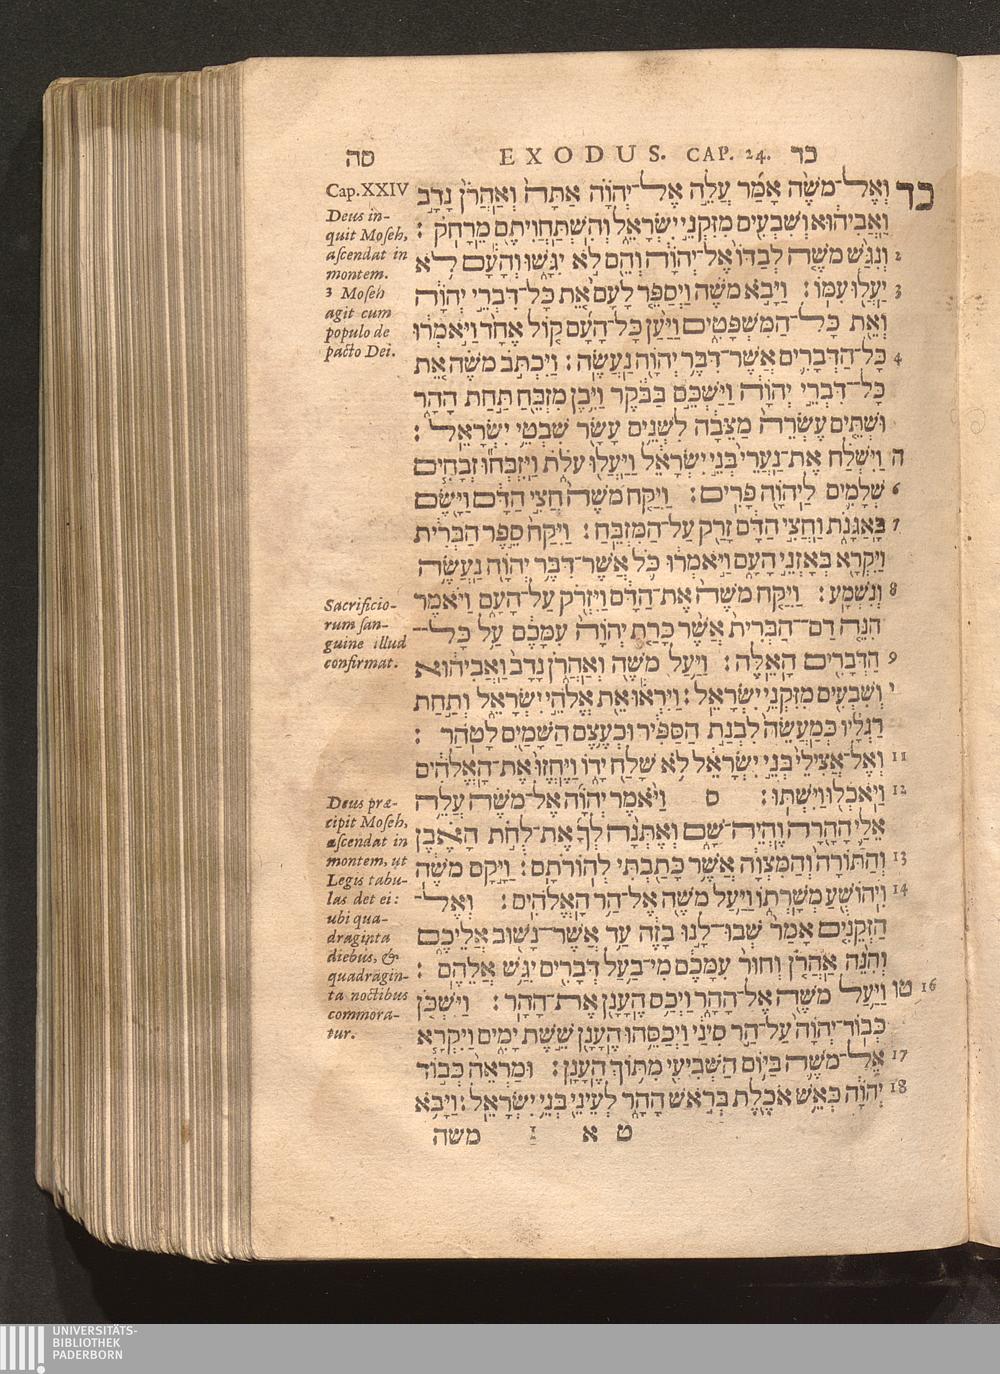 סה EXODUS. CAP. 24. כד
Cap. XXIV
Deus in-
quit Moseh,
ascendat in
montem.
3 Moseh
agit cum
populo de
pacto Dei.
Sacrificio-
rum san-
guine illud
confirmat.
Deus præ-
cipit Moseh,
ascendat in
montem, ut
Legis tabu-
las det ei:
ubi qua-
draginta
diebus, &
quadragin-
ta noctibus
commora-
tur.
כד וְאֶל־מֹשֶׁה אָמַר עֲלֵה אֶל־יְהוָֹה אַתָּה וְאַהֲרֹן נָדָב
וַאֲבִיהוּא וְשִׁבְעִים מִזִּקְנֵי יִשְׂרָאֵל וְהִשְׁתַּחֲוִיתֶם מֵרָחֹק :
2 וְנִגַּשׁ מֹשֶׁה לְבַדּוֹ אֶל־יְהוָֹה וְהֵם לֹא יִגָּשׁוּ וְהָעָם לֹא
3 יַעֲלוּ עִמּוֹ : וַיָּבֹא מֹשֶׁה וַיְסַפֵּר לָעָם אֵת כָּל־דִּבְרֵי יְהוָֹה
וְאֵת כָּל־הַמִּשְׁפָּטִים וַיַּעַן כָּל־הָעָם קוֹל אֶחָד וַיֹּאמְרוּ
4 כָּל־הַדְּבָרִים אֲשֶׁר־דִּבֶּר יְהוָֹה נַעֲשֶׂה : וַיִּכְתֹּב מֹשֶׁה אֵת
כָּל־דִּבְרֵי יְהוָֹה וַיַּשְׁכֵּם בַּבֹּקֶר וַיִּבֶן מִזְבֵּחַ תַּחַת הָהָר
וּשְׁתֵּים עֶשְׂרֵה מַצֵּבָה לִשְׁנֵים עָשָׂר שִׁבְטֵי יִשְׂרָאֵל :
ה וַיִּשְׁלַח אֶת־נַעֲרֵי בְּנֵי יִשְׂרָאֵל וַיַּעֲלוּ עֹלֹת וַיִּזְבְּחוּ זְבָחִים
6 שְׁלָמִים לַיהוָֹה פָּרִים : וַיִּקַּח מֹשֶׁה חֲצִי הַדָּם וַיָּשֶׂם
7 בָּאַגָּנֹת וַחֲצִי הַדָּם זָרַק עַל־הַמִּזְבֵּחַ : וַיִּקַּח סֵפֶר הַבְּרִית
וַיִּקְרָא בְּאָזְנֵי הָעָם וַיֹּאמְרוּ כֹּל אֲשֶׁר־דִּבֶּר יְהוָֹה נַעֲשֶׂה
8 וְנִשְׁמָע : וַיִּקַּח מֹשֶׁה אֶת־הַדָּם וַיִּזְרֹק עַל־הָעָם וַיֹּאמֶר
הִנֵּה דַם־הַבְּרִית אֲשֶׁר כָּרַת יְהוָֹה עִמָּכֶם עַל כָּל־
9 הַדְּבָרִים הָאֵלֶּה : וַיַּעַל מֹשֶׁה וְאַהֲרֹן נָדָב וַאֲבִיהוּא
י וְשִׁבְעִים מִזִּקְנֵי יִשְׂרָאֵל : וַיִּרְאוּ אֵת אֱלֹהֵי יִשְׂרָאֵל וְתַחַת
רַגְלָיו כְּמַעֲשֵׂה לִבְנַת הַסַּפִּיר וּכְעֶצֶם הַשָּׁמַיִם לָטֹהַר :
11 וְאֶל־אֲצִילֵי בְּנֵי יִשְׂרָאֵל לֹא שָׁלַח יָדוֹ וַיֶּחֱזוּ אֶת־הָאֱלֹהִים
12 וַיֹּאכְלוּ וַיִּשְׁתּוּ : ס וַיֹּאמֶר יְהוָֹה אֶל־מֹשֶׁה עֲלֵה
אֵלַי הָהָרָה וֶהְיֵה־שָׁם וְאֶתְּנָה לְךָ אֶת־לֻחֹת הָאֶבֶן
13 וְהַתּוֹרָה וְהַמִּצְוָה אֲשֶׁר כָּתַבְתִּי לְהוֹרֹתָם : וַיָּקָם מֹשֶׁה
14 וִיהוֹשֻׁעַ מְשָׁרְתוֹ וַיַּעַל מֹשֶׁה אֶל־הַר הָאֱלֹהִים : וְאֶל־
הַזְּקֵנִים אָמַר שְׁבוּ־לָנוּ בָזֶה עַד אֲשֶׁר־נָשׁוּב אֲלֵיכֶם
וְהִנֵּה אַהֲרֹן וְחוּר עִמָּכֶם מִי־בַעַל דְּבָרִים יִגַּשׁ אֲלֵהֶם :
16 טו וַיַּעַל מֹשֶׁה אֶל־הָהָר וַיְכַס הֶעָנָן אֶת־הָהָר : וַיִּשְׁכֹּן
כְּבוֹד־יְהוָֹה עַל־הַר סִינַי וַיְכַסֵּהוּ הֶעָנָן שֵׁשֶׁת יָמִים וַיִּקְרָא
17 אֶל־מֹשֶׁה בַּיּוֹם הַשְּׁבִיעִי מִתּוֹךְ הֶעָנָן : וּמַרְאֵה כְּבוֹד
18 יְהוָֹה כְּאֵשׁ אֹכֶלֶת בְּרֹאשׁ הָהָר לְעֵינֵי בְּנֵי יִשְׂרָאֵל : וַיָּבֹא
ט א 1 משה
UNIVERSITÄTS-
BIBLIOTHEK
PADERBORN